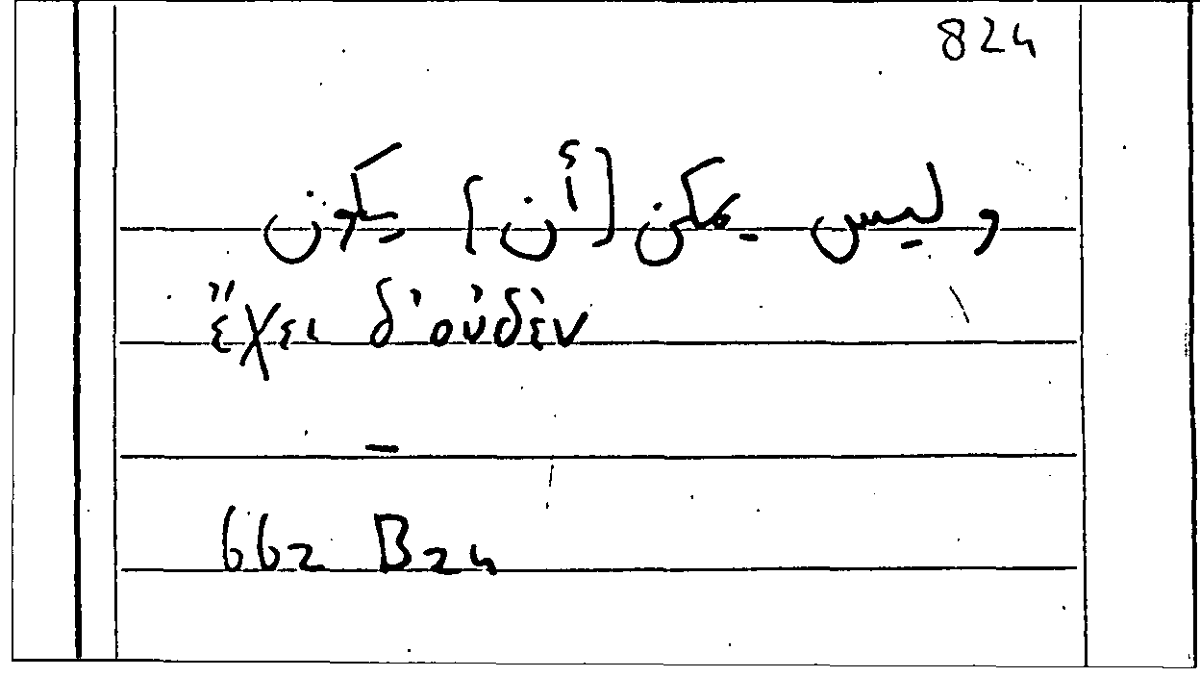 824
وليس يمكن [أن] يكون
ἔχει δ' οὐδὲν
662 B24